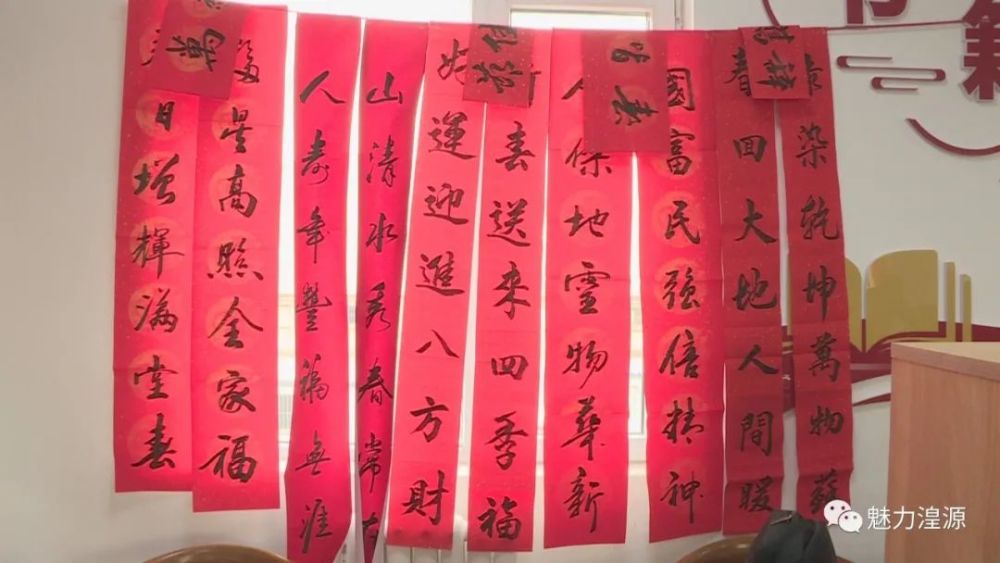 萬
日增輝滿堂春
福星高照全家福
人壽年豐福無涯
山清水秀春常在
好運迎進八方財
春送來四季福
人傑地靈物華新
國富民強倍精神
春回大地人間暖
染乾坤萬物蘇
魅力湟源